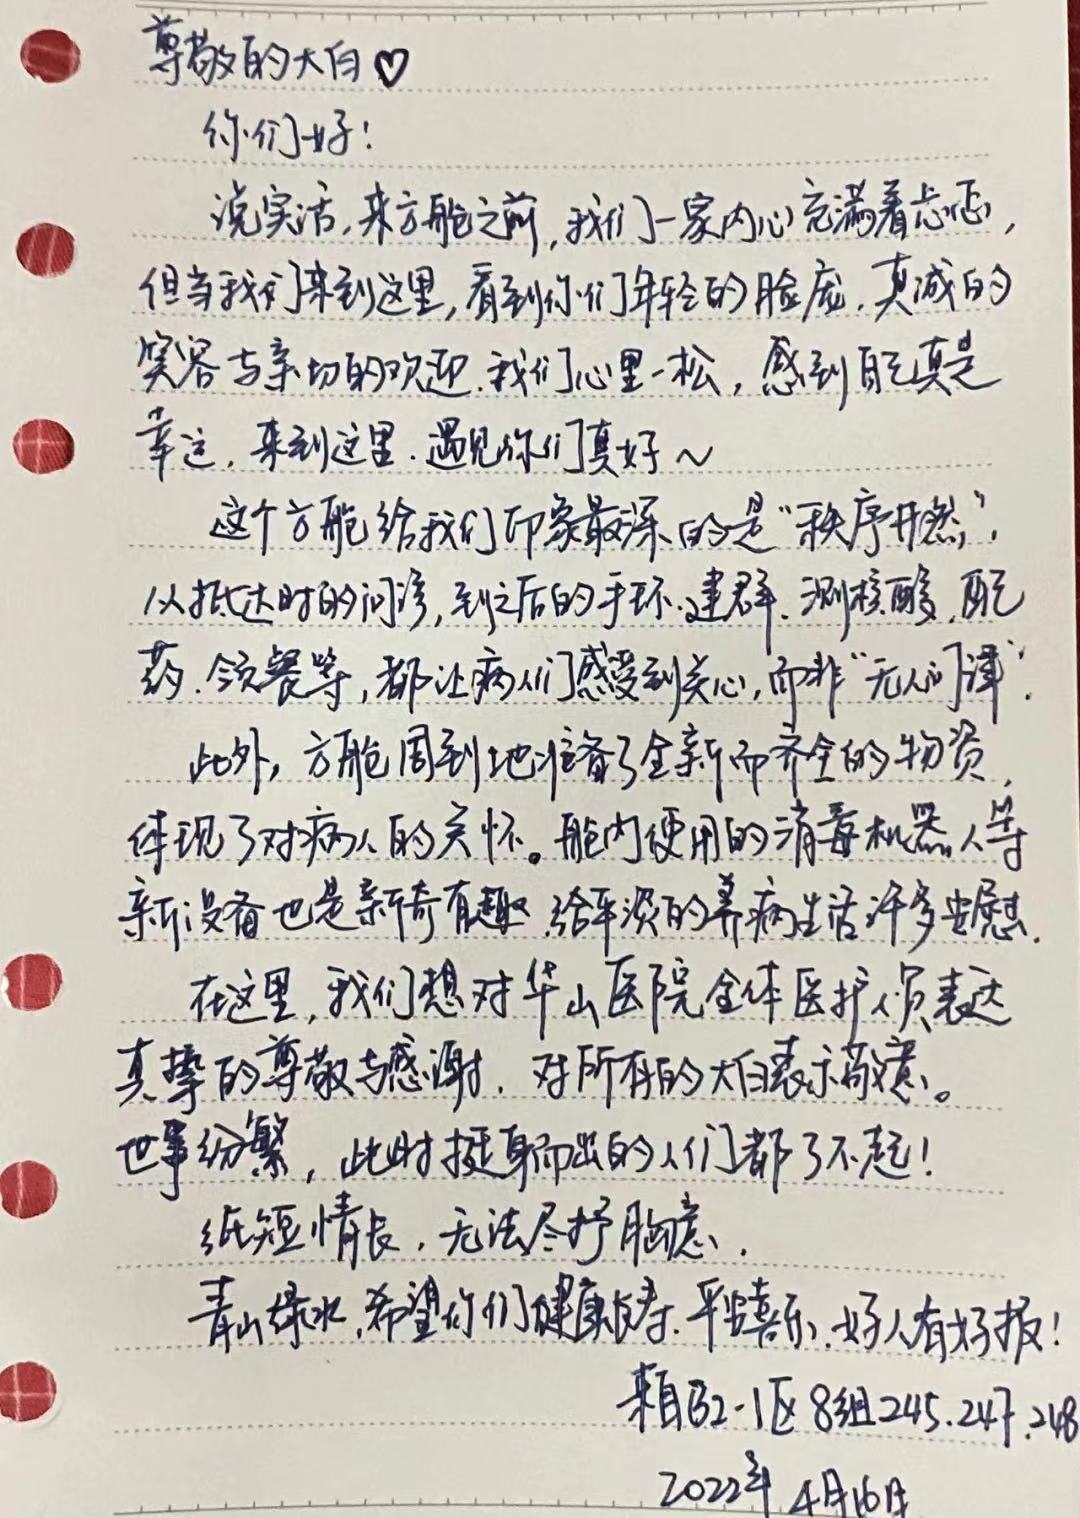 尊敬的大白♡
你们好！
说实话，来方舱之前，我们一家内心充满着忐忑，
但当我们来到这里，看到你们年轻的脸庞、真诚的
笑容与亲切的欢迎，我们心里一松，感到自己真是
幸运，来到这里，遇见你们真好～
这个方舱给我们印象最深的是“秩序井然”，
从抵达时的问诊，到之后的手环、建群、测核酸、配
药、领餐等，都让病人们感受到关心，而非“无人问津”。
此外，方舱周到地准备了全新而齐全的物资，
体现了对病人的关怀。舱内使用的消毒机器人等
新设备也是新奇有趣，给平淡的养病生活许多安慰.
在这里，我们想对华山医院全体医护人员表达
真挚的尊敬与感谢，对所有的大白表示敬意。
世事纷繁，此时挺身而出的人们都了不起！
纸短情长，无法尽抒胸意.
青山绿水，希望你们健康长寿、平安喜乐，好人有好报！
来自B2-1区8组245.247.248
2022年4月16日